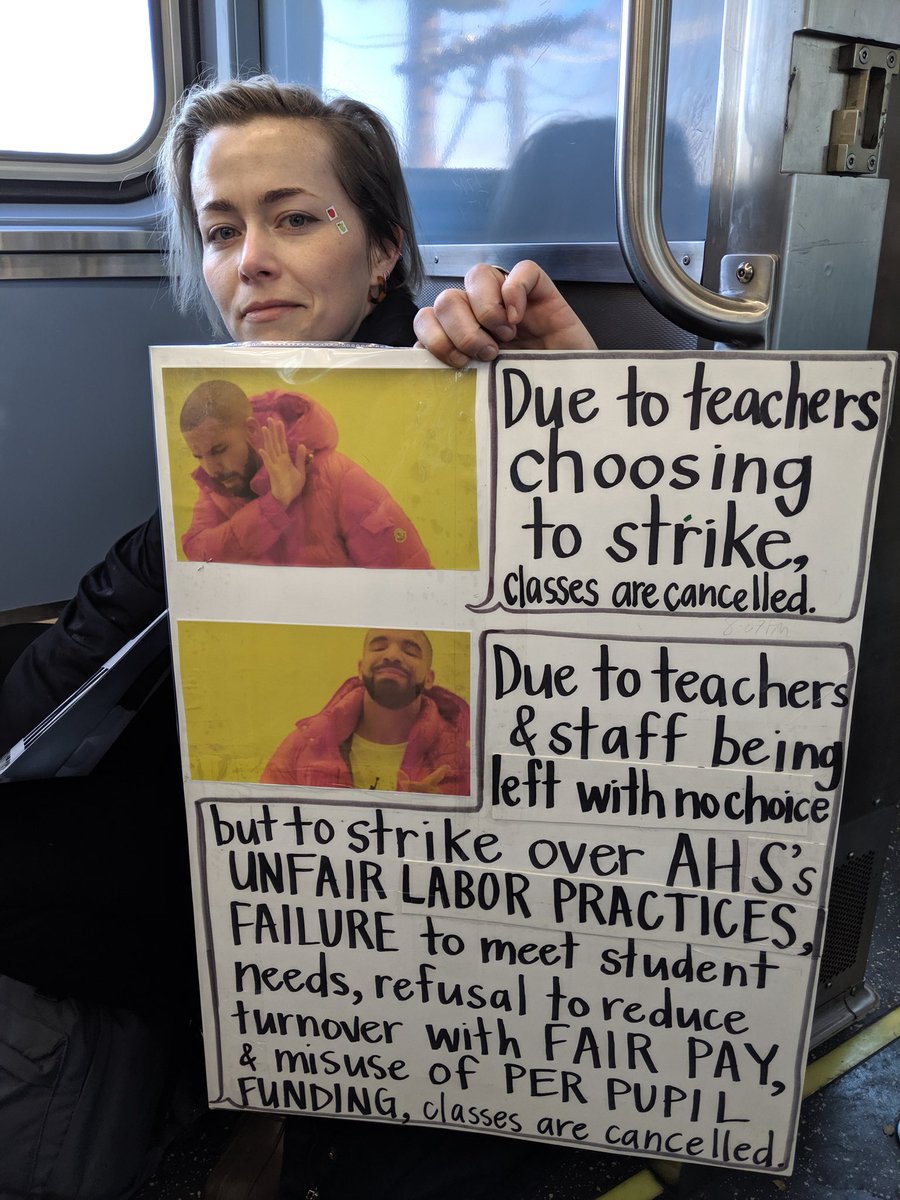 Due to teachers
choosing
to strike,
classes are cancelled.
Due to teachers
& staff being
left with no choice
but to strike over AHS's
UNFAIR LABOR PRACTICES,
FAILURE to meet student
needs, refusal to reduce
turnover with FAIR PAY,
& misuse of PER PUPIL
FUNDING, classes are cancelled.